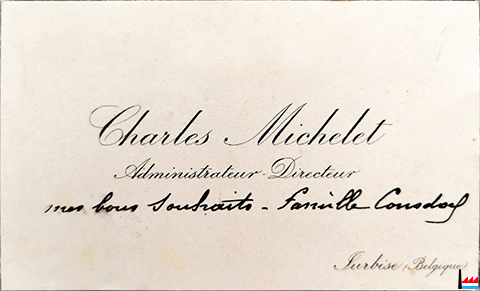 Charles Michelet
Administrateur-Directeur
mes bons souhaits - famille
Jurbise (Belgique)